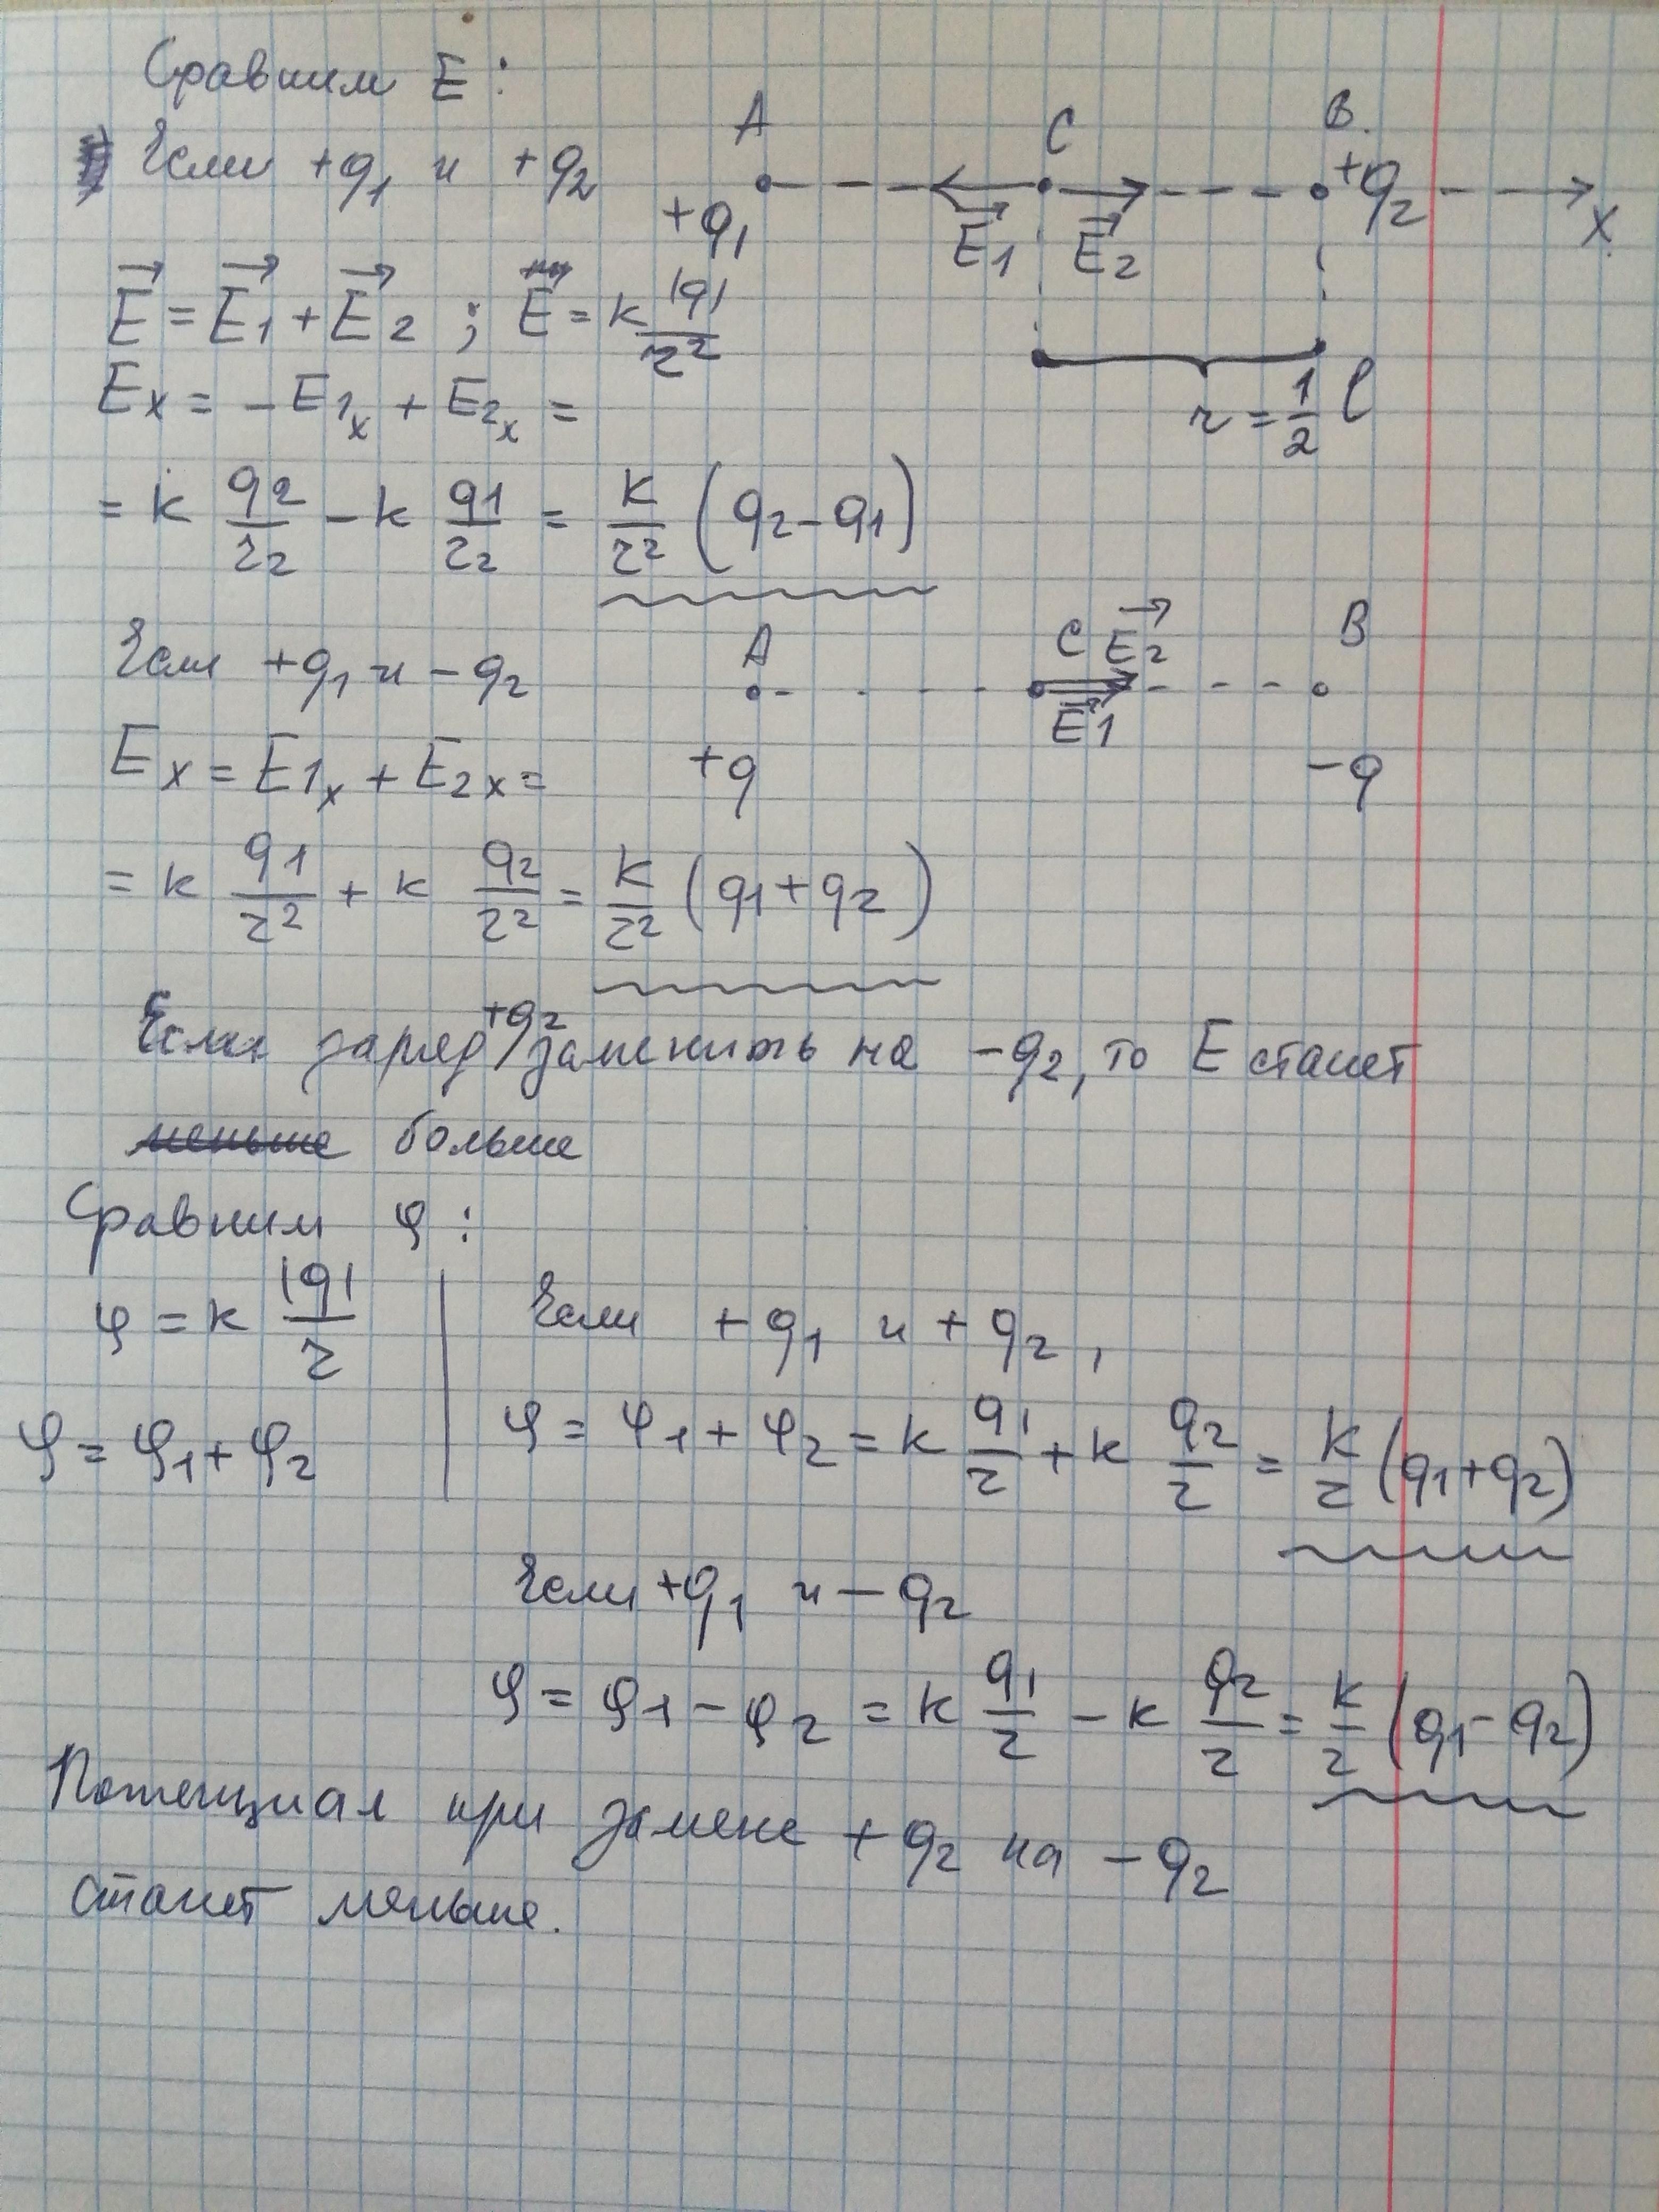 Сравним E:
Если +q₁ и +q₂
A C B.
+q₁ E⃗₁ E⃗₂ +q₂ X
E⃗ = E⃗₁ + E⃗₂ ; E⃗ = k |q|/r²
Eₓ = −E₁ₓ + E₂ₓ =
r = 1/2 l
= k q₂/r₂ − k q₁/r₂ = k/r² (q₂ − q₁)
Если +q₁ и −q₂
A C E⃗₂ B
E⃗₁
Eₓ = E₁ₓ + E₂ₓ =
+q −q
= k q₁/r² + k q₂/r² = k/r² (q₁ + q₂)
Если заряд +q₂ заменить на −q₂, то E станет
меньше больше
Сравним φ:
φ = k |q|/r
φ = φ₁ + φ₂
Если +q₁ и +q₂,
φ = φ₁ + φ₂ = k q₁/r + k q₂/r = k/r (q₁ + q₂)
Если +q₁ и −q₂
φ = φ₁ − φ₂ = k q₁/r − k q₂/r = k/r (q₁ − q₂)
Потенциал при замене +q₂ на −q₂
станет меньше.